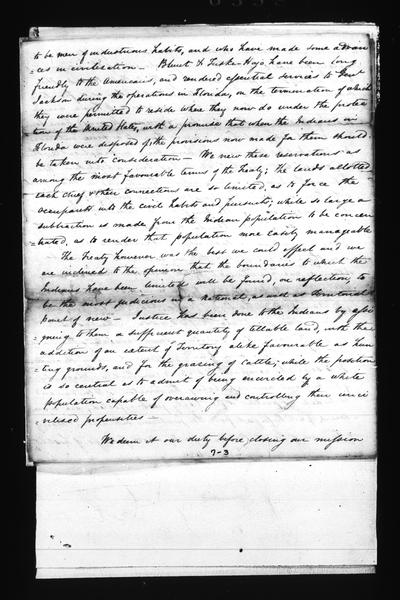 to be men of industrious habits, and who have made some advan
ces in civilisation — Blunt & Tuske Hajo, have been long
friendly to the Americans, and rendered essential services to Genl
Jackson during the operations in Florida, on the termination of which
they were permitted to reside where they now do under the protec
tion of the United States, with a promise that when the Indians in
Florida were disposed of, the provisions now made for them should
be taken into consideration — We view these reservations as
among the most favourable terms of the Treaty; the lands allotted
each Chief & their connections are so limited, as to force the
occupants into the civil habits and pursuits; while so large a
subtraction is made from the Indian population to be concen
=trated, as to render that population more easily manageable
The Treaty however was the best we could effect and we
are inclined to the opinion, that the boundaries to which the
Indians have been limited will be found, on reflection, to
be the most judicious in a national, as well as Territorial
point of view — Justice has been done to the Indians by assi
=gning to them a sufficient quantity of tillable land, with the
addition of an extent of Territory alike favourable as hun
=ting grounds, and for the grazing of cattle; while the position
is so central as to admit of being encircled by a white
population capable of overawing and controlling their unci
=vilised propensities —
We deem it our duty before closing our mission
7-3